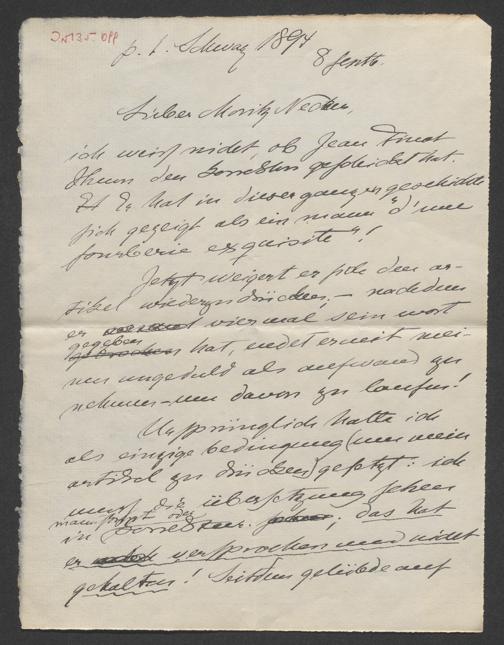 p. t. Schwaz 1894
8 Septb.
Lieber Moritz Necker,
ich weiss nicht, ob Jean Finot
Ihnen den Correktur geschickt hat.
Er hat in dieser ganzen geschichte
sich gezeigt als ein mann "d'une
fourberie exquisite"!
Jetzt weigert er sich den ar-
tikel wiederzudrücken, – nachdem
er viermal sein wort
gegeben
hat, endet er mit mei-
nen ungeduld als aufwand zu
nehmen – um davon zu laufen!
Ursprünglich hatte ich
als einzige bedingung (um mein
artikel zu drücken) gesetzt: ich
muss die übersetzung sehen
manuscript oder
in Correktur. das hat
er versprochen und nicht
gehalten! Seitdem gelübde auf